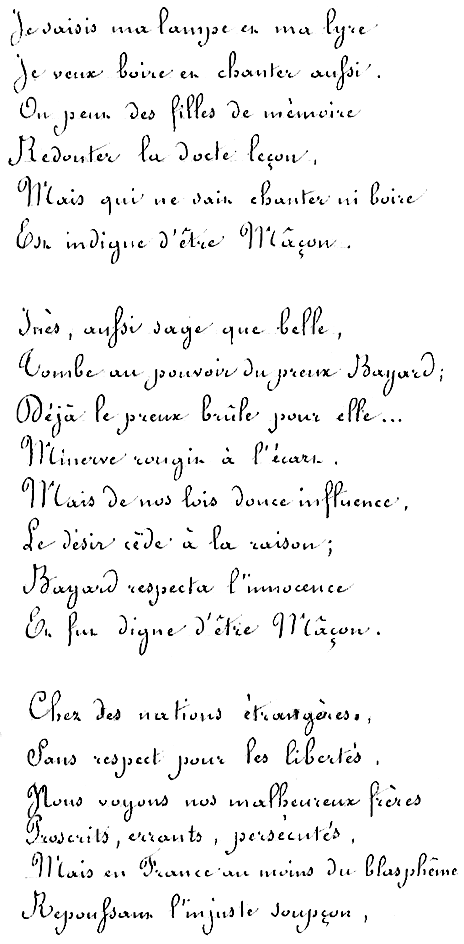 Je saisis ma lampe et ma lyre
Je veux boire et chanter aussi.
On peut des filles de mèmoire
Redouter la docte leçon,
Mais qui ne sait chanter ni boire
Est indigne d'être Mâçon.

Inès, aussi sage que belle,
Tombe au pouvoir du preux Bayard;
Déjà le preux brûle pour elle...
Minerve rougit à l'écart.
Mais de nos lois douce influence,
Le désir cède à la raison;
Bayard respecta l'innocence
Et fut digne d'être Mâçon.

Chez des nations étrangères,
Sans respect pour les libertés,
Nous voyons nos malheureux frères
Proscrits, errants, persécutés,
Mais en France au moins du blasphême
Repoussant l'injuste soupçon,